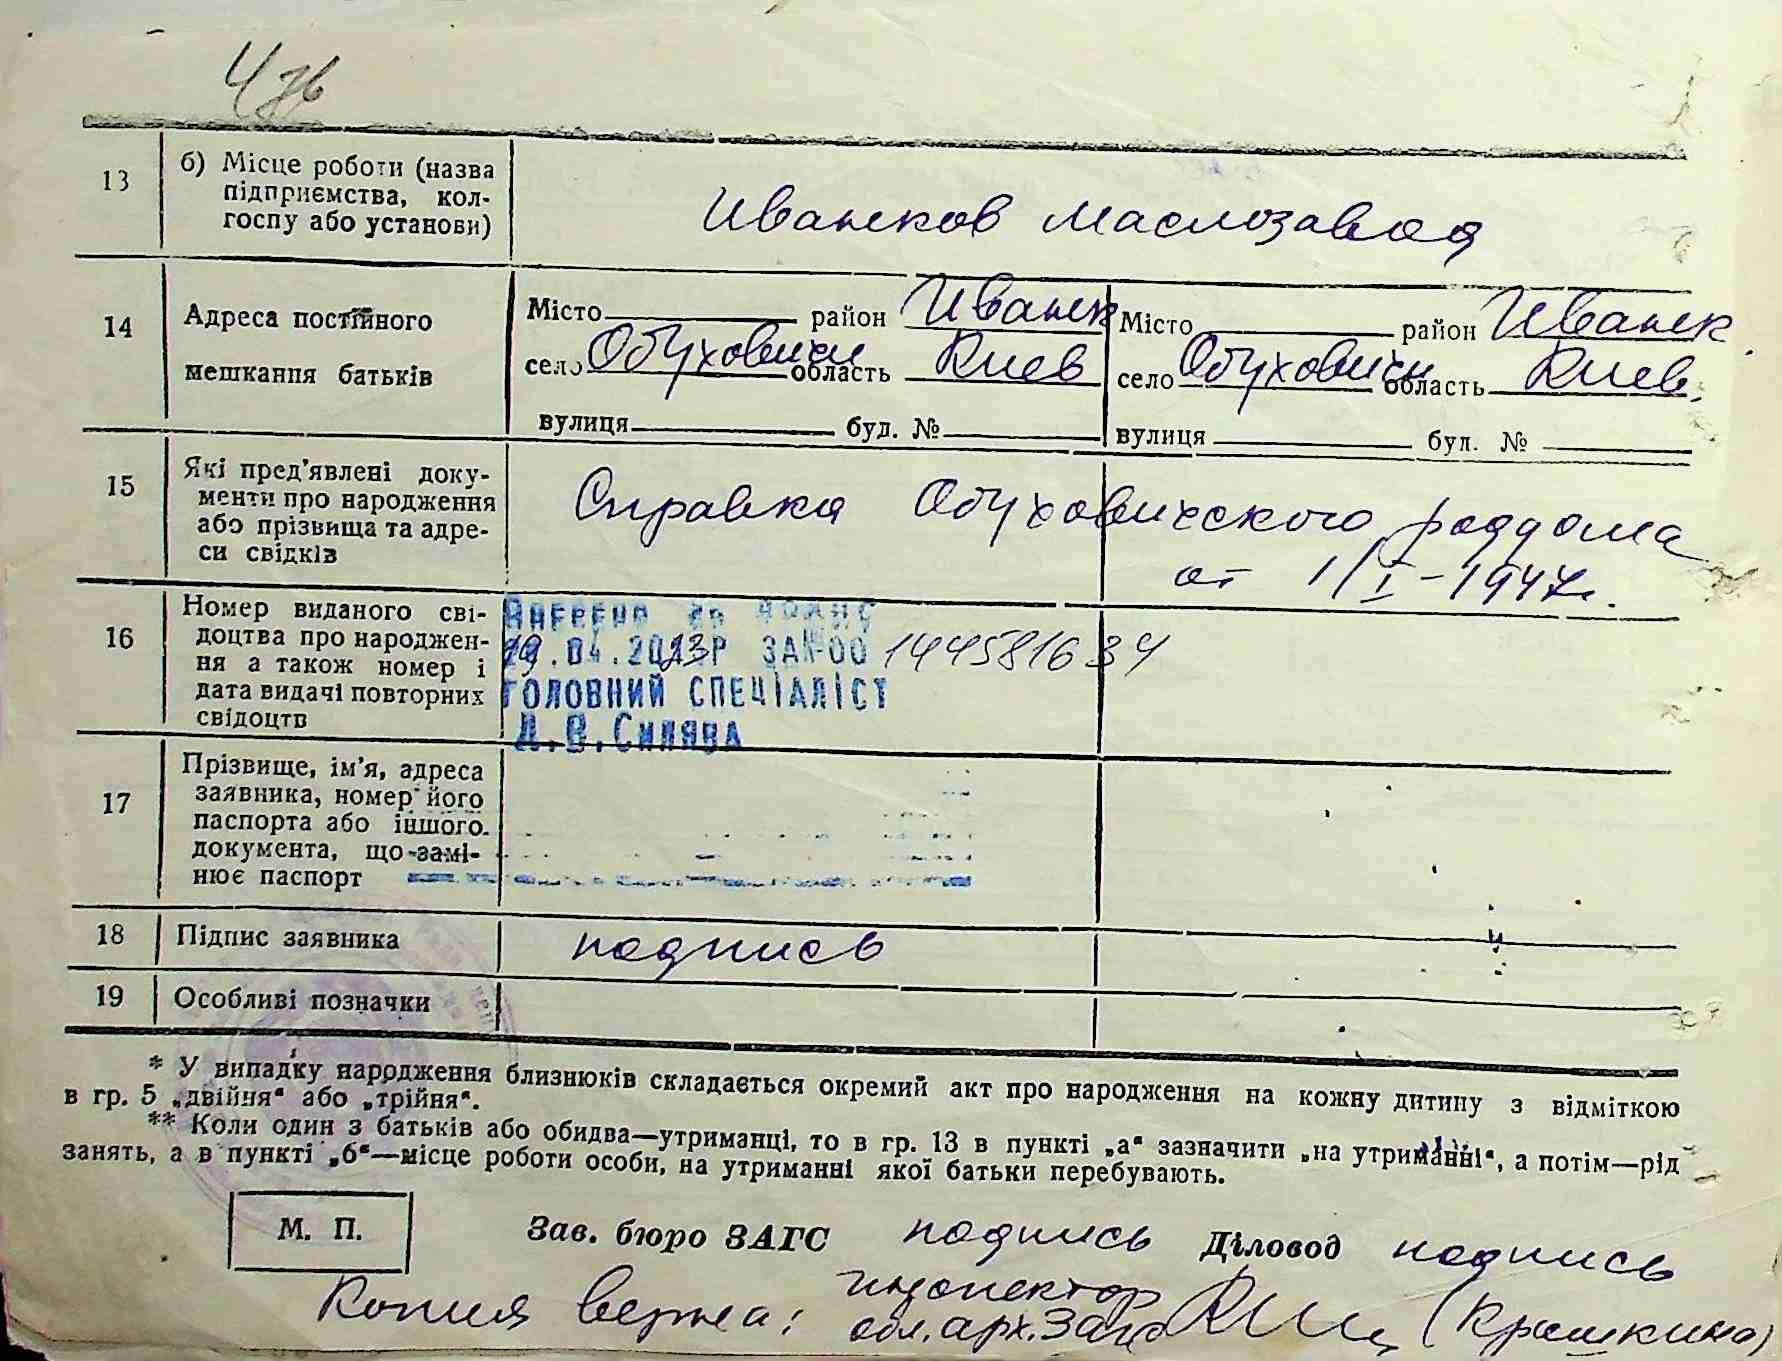 13
б) Місце роботи (назва
підприємства, кол-
госпу або установи)
Иванков маслозавод
14
Адреса постійного
мешкання батьків
Місто район Иванк
село Обуховичи область Киев
вулиця буд. №
Місто район Иванк
село Обуховичи область Киев
вулиця буд. №
15
Які пред'явлені доку-
менти про народження
або прізвища та адре-
си свідків
Справка Обуховичского роддома
от 1/I-1947г.
16
Номер виданого сві-
доцтва про народжен-
ня а також номер і
дата видачі повторних
свідоцтв
.04.2013Р ЗА№00 1445816 34
ГОЛОВНИЙ СПЕЦІАЛІСТ
Д.В.Силява
17
Прізвище, ім'я, адреса
заявника, номер його
паспорта або іншого
документа, що замі-
нює паспорт
18
Підпис заявника
подпись
19
Особливі позначки
* У випадку народження близнюків складається окремий акт про народження на кожну дитину з відміткою
в гр. 5 „двійня“ або „трійня“.
** Коли один з батьків або обидва—утриманці, то в гр. 13 в пункті „а“ зазначити „на утриманні“, а потім—рід
занять, а в пункті „б“—місце роботи особи, на утриманні якої батьки перебувають.
М. П.
Зав. бюро ЗАГС подпись Діловод подпись
Копия верна: инспектор
обл. арх. Загс (Крашкина)